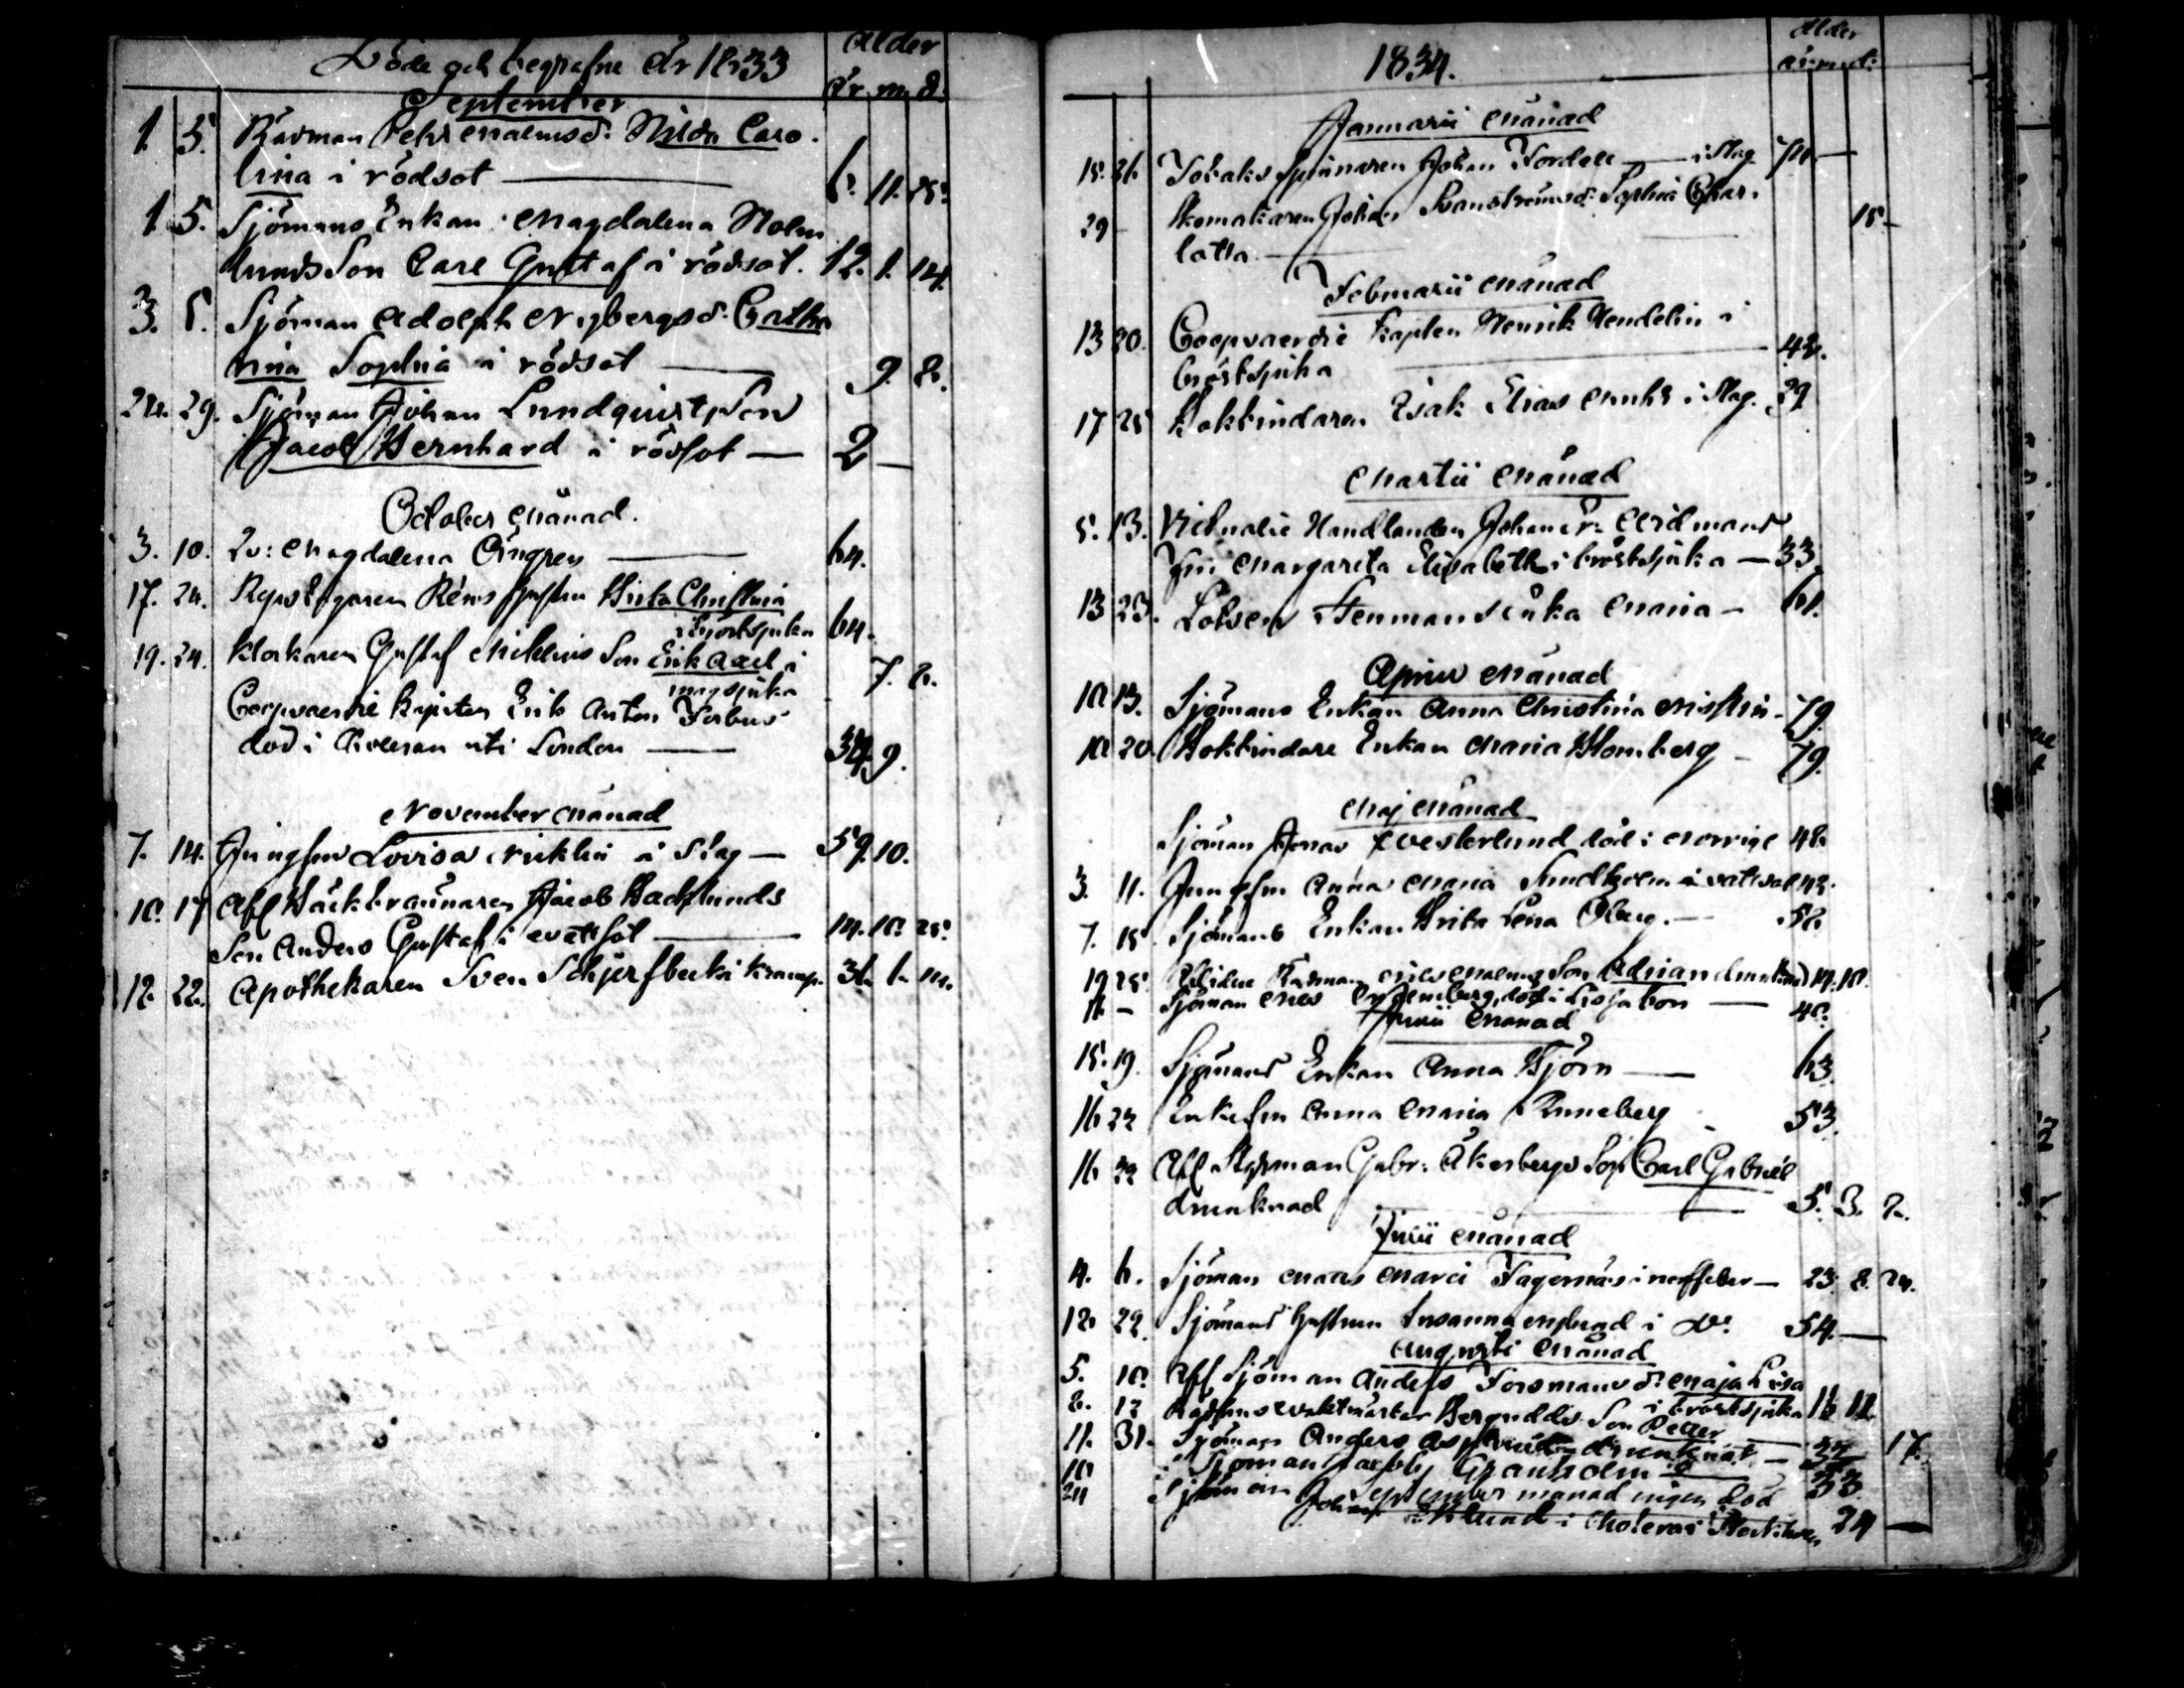 Döde och begrafne År 1833 Ålder
år. m. d.
September
1. 5. Rådman Pehr Malmsd: Hilda Caro-
lina i rödsot — 6. 11. 25.
1. 5. Sjömans Enkan Magdalena Holm
lunds Son Carl Gustaf i rödsot. 12. 1. 14.
3. 8. Sjöman Adolph Nybergs d: Catha
rina Sophia i rödsot — 9. 8.
24. 29. Sjöman Johan Lundqvist Son
Jacob Bernhard i rödsot — 2 —
October Månad.
3. 10. Magdalena Ångren — 64.
17. 24. Repslagaren hustru Brita Christina
i bröstsjuka 64.
19. 24. Klockaren Gustaf Niklins Son Erik Axel i
magsjuka 7. 2.
Coopvaerdie Kapiten Erik Anton Forbus
död i Choleran uti London — 34. 9.
November Månad
7. 14. Jungfru Lovisa Niklin i Slag — 59. 10.
10. 17 Afl Bäckbrännaren Jacob Backlunds
Son Anders Gustaf i vattsot — 14. 10. 25.
12. 22. Apothekaren Sven Schjerfbeck i Kramp. 31. 1. 14.
1834. Ålder
år. m. d.
Januarii Månad
15. 21. Tobaks Spinnaren Johan Fordell — i slag 70 —
29 — Skomakaren Johan Svanströms d: Sophia Char-
lotta — 15 —
Februarii Månad
13 20. Coopvaerdie Kapten Henrik Wendelin i
bröstsjuka — 42.
17 25 Bokbindaren Isak Elias Munk i Slag. 29
Martii Månad
5. 13. Victualie Handlanden Johan Widmans
fru Margareta Elisabeth i bröstsjuka — 33.
13 23. Lotsen Stenmans Enka Maria — 61.
April Månad
10 13. Sjömans Enkan Anna Christina — 79.
10 20. Bokbindare Enkan Maria Blomberg — 79.
Maj Månad
Sjöman Jonas Westerlund död i Norrige 48.
3. 11. Jungfru Anna Maria Sundholm i vattsot 42.
7. 15. Sjömans Enkan Brita Lena Öberg. — 52.
19 25. Rådman Son Adrian drunknad 14. 10.
11 — Sjöman död i Lissabon — 40.
Junii Månad
15. 19. Sjömans Enkan Anna Björn — 63.
16 22 Enkefru Anna Maria Runeberg 53.
16 22 Afl Styrman Gabr: Åkerbergs Son Carl Gabriel
drunknad — 5. 3. 2.
Julii Månad
4. 6. Sjöman Mats Fagernäs i nerffeber — 23. 8. 24.
12 22. Sjömans hustrun Susanna Englund i do: 54. —
Augusti Månad
5. 10. Afl Sjöman Anders Forsmans d: Maja Lisa
i bröstsjuka 16 11
8. 12 Rådhus waktmästar Bergudds Son Petter — 17.
11. 31. Sjöman Anders Asplund drunknat — 32
10 Sjöman Granholm — 33
September månad ingen död
24 Sjöman Johan Eklund i Cholera i Stockholm 24 —